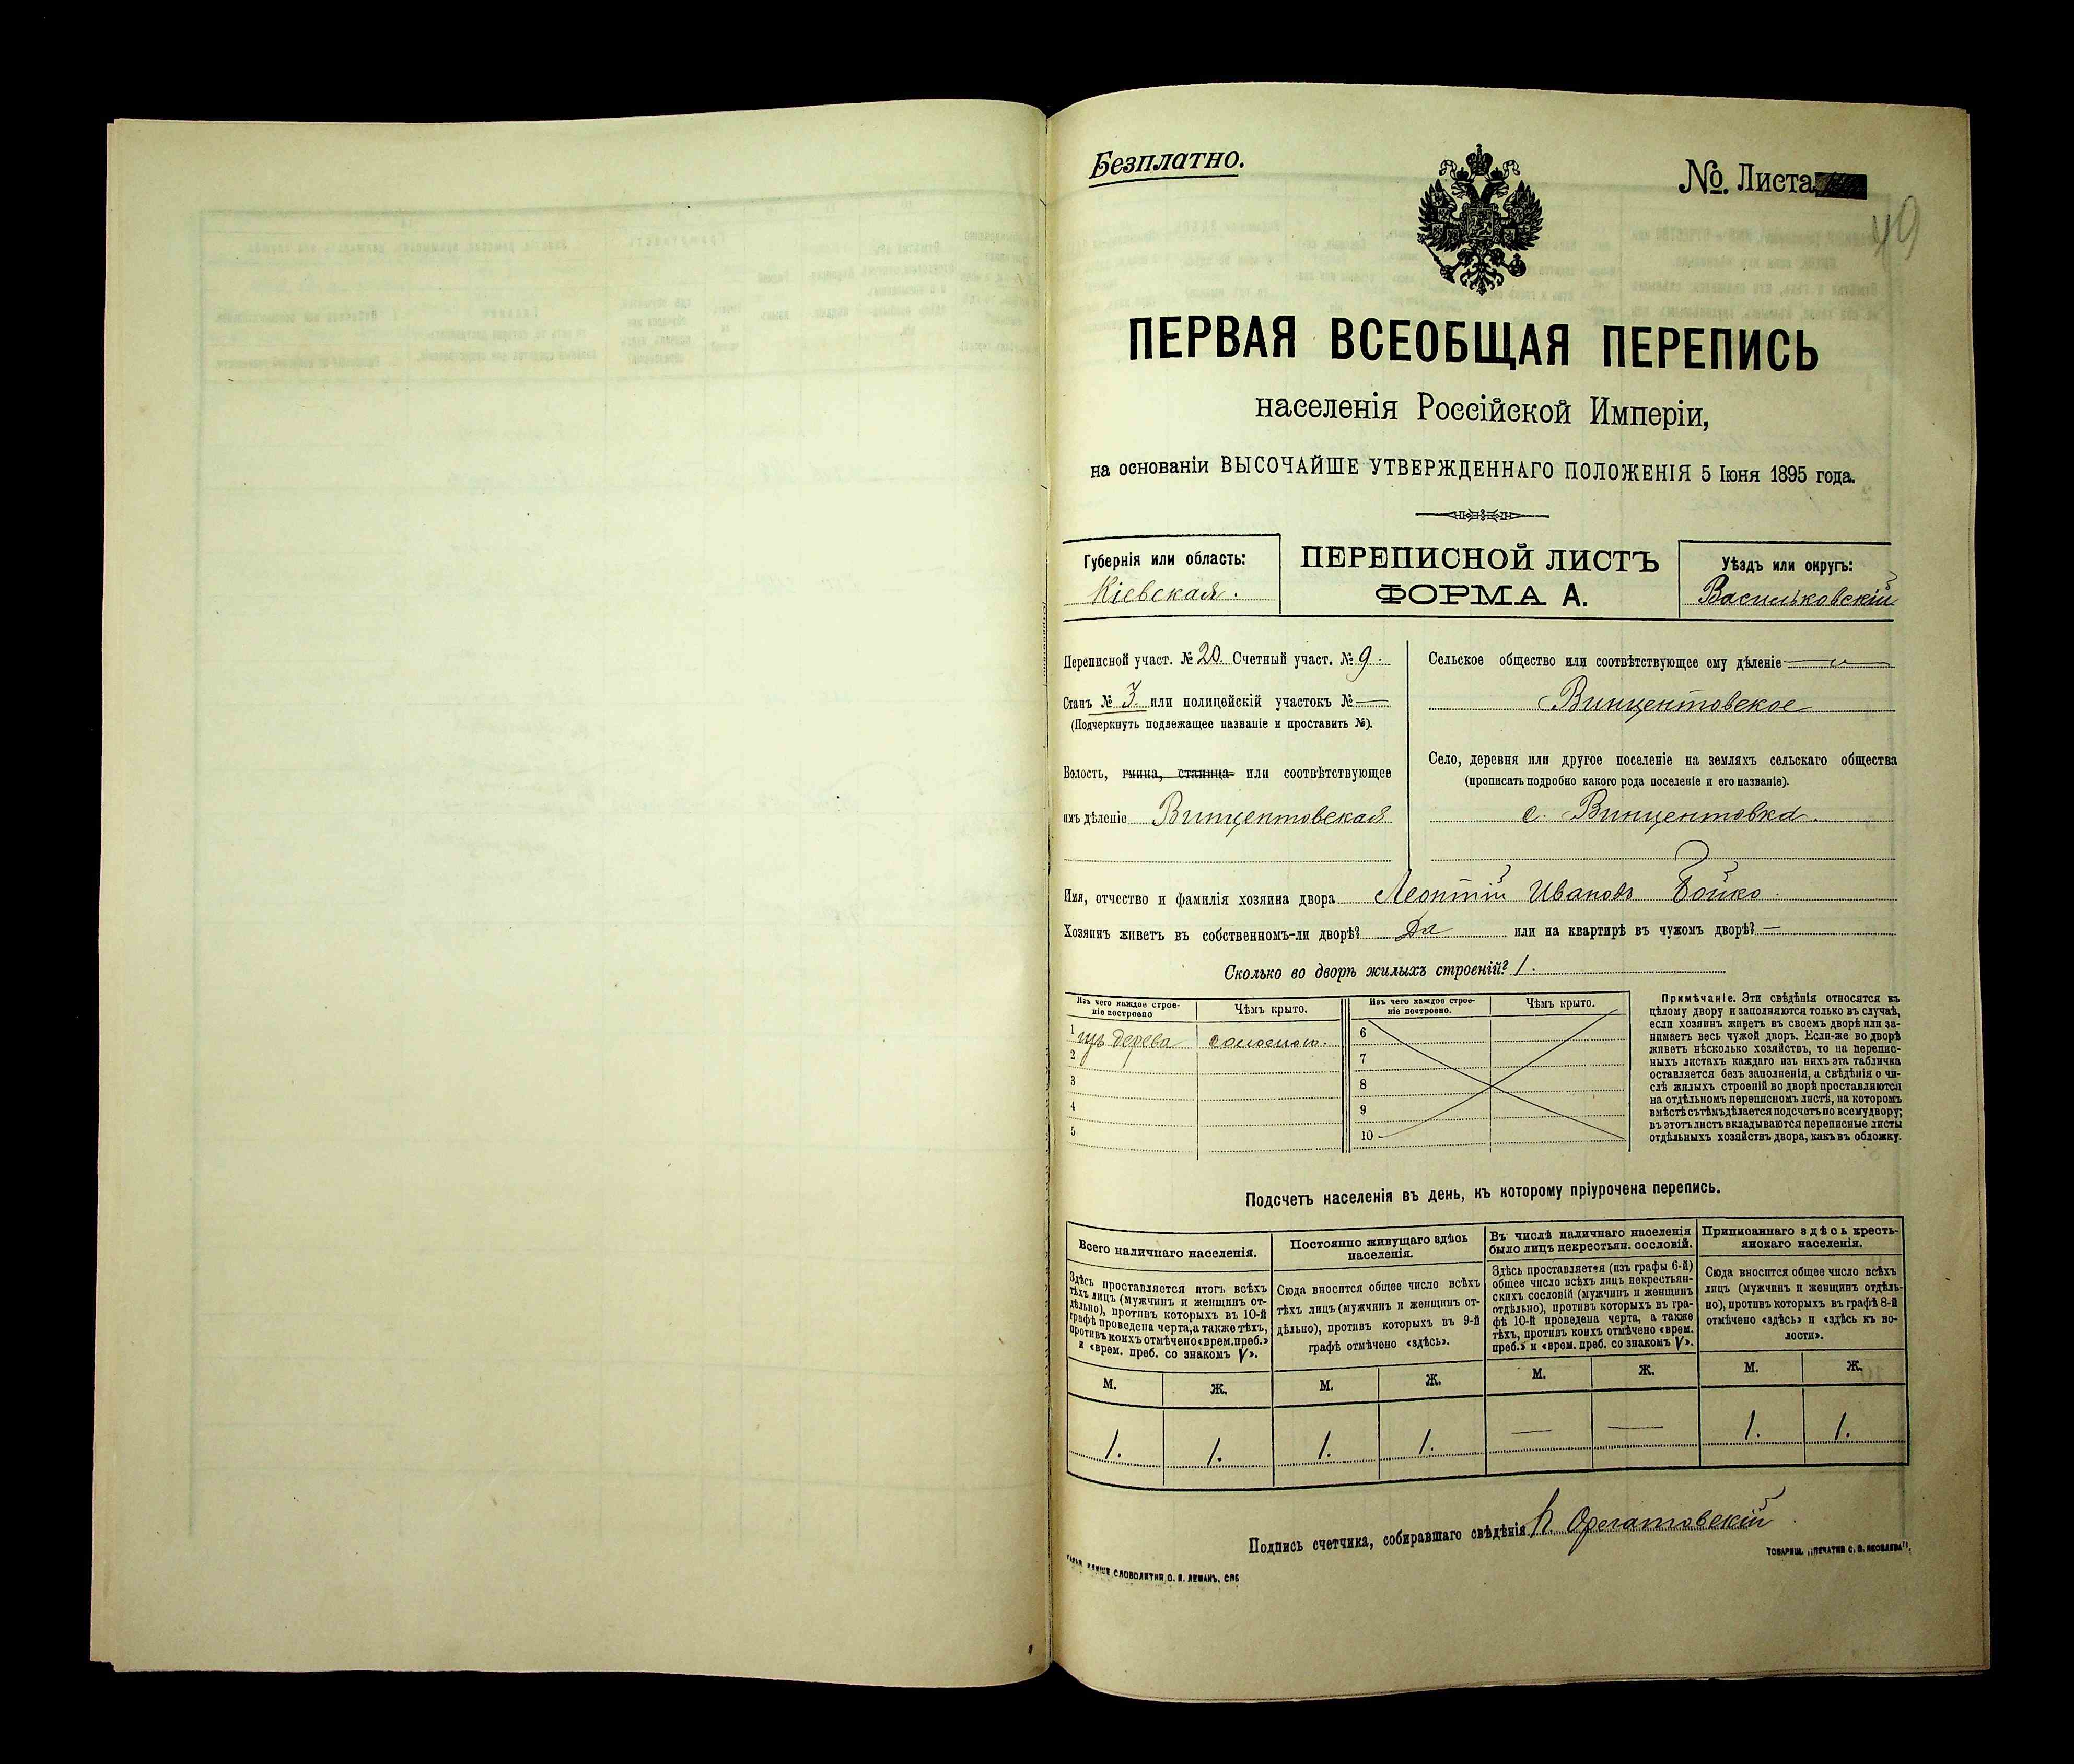 Безплатно.
№. Листа
49
ПЕРВАЯ ВСЕОБЩАЯ ПЕРЕПИСЬ
населенія Россійской Имперіи,
на основаніи ВЫСОЧАЙШЕ УТВЕРЖДЕННАГО ПОЛОЖЕНІЯ 5 Іюня 1895 года.
Губернія или область:
Кіевская.
ПЕРЕПИСНОЙ ЛИСТЪ
ФОРМА А.
Уѣздъ или округъ:
Васильковскій
Переписной участ. № 20. Счетный участ. № 9.
Станъ № 3. или полицейскій участокъ № —
(Подчеркнуть подлежащее названіе и проставить №).
Волость, гмина, станица или соотвѣтствующее
имъ дѣленіе Винцентовская
Сельское общество или соотвѣтствующее ему дѣленіе
Винцентовское
Село, деревня или другое поселеніе на земляхъ сельскаго общества
(прописать подробно какого рода поселеніе и его названіе).
с. Винцентовка.
Имя, отчество и фамилія хозяина двора Леонтій Ивановъ Бойко.
Хозяинъ живетъ въ собственномъ-ли дворѣ? Да или на квартирѣ въ чужомъ дворѣ? —
Сколько во дворѣ жилыхъ строеній? 1.
Изъ чего каждое строе-
ніе построено
Чѣмъ крыто.
1 изъ дерева соломою.
2
3
4
5
Изъ чего каждое строе-
ніе построено.
Чѣмъ крыто.
6
7
8
9
10
Примѣчаніе. Эти свѣдѣнія относятся къ
цѣлому двору и заполняются только въ случаѣ,
если хозяинъ живетъ въ своемъ дворѣ или за-
нимаетъ весь чужой дворъ. Если-же во дворѣ
живетъ нѣсколько хозяйствъ, то на перепис-
ныхъ листахъ каждаго изъ нихъ эта табличка
оставляется безъ заполненія, а свѣдѣнія о чи-
слѣ жилыхъ строеній во дворѣ проставляются
на отдѣльномъ переписномъ листѣ, на которомъ
вмѣстѣ съ тѣмъ дѣлается подсчетъ по всему двору;
въ этотъ листъ вкладываются переписные листы
отдѣльныхъ хозяйствъ двора, какъ въ обложку.
Подсчетъ населенія въ день, къ которому пріурочена перепись.
Всего наличнаго населенія.
Здѣсь проставляется итогъ всѣхъ
тѣхъ лицъ (мужчинъ и женщинъ от-
дѣльно), противъ которыхъ въ 10-й
графѣ проведена черта, а также тѣхъ,
противъ коихъ отмѣчено «врем. преб.»
и «врем. преб. со знакомъ V».
М. Ж.
1. 1.
Постоянно живущаго здѣсь
населенія.
Сюда вносится общее число всѣхъ
тѣхъ лицъ (мужчинъ и женщинъ от-
дѣльно), противъ которыхъ въ 9-й
графѣ отмѣчено «здѣсь».
М. Ж.
1. 1.
Въ числѣ наличнаго населенія
было лицъ некрестьян. сословій.
Здѣсь проставляется (изъ графы 6-й)
общее число всѣхъ лицъ некрестьян-
скихъ сословій (мужчинъ и женщинъ
отдѣльно), противъ которыхъ въ гра-
фѣ 10-й проведена черта, а также
тѣхъ, противъ коихъ отмѣчено «врем.
преб.» и «врем. преб. со знакомъ V».
М. Ж.
— —
Приписаннаго здѣсь кресть-
янскаго населенія.
Сюда вносится общее число всѣхъ
лицъ (мужчинъ и женщинъ отдѣль-
но), противъ которыхъ въ графѣ 8-й
отмѣчено «здѣсь» и «здѣсь къ во-
лости».
М. Ж.
1. 1.
Подпись счетчика, собиравшаго свѣдѣнія
СЛОВОЛИТНЯ О. И. ЛЕМАНЪ, СПБ
ТОВАРИЩ. „ПЕЧАТНЯ С. П. ЯКОВЛЕВА".